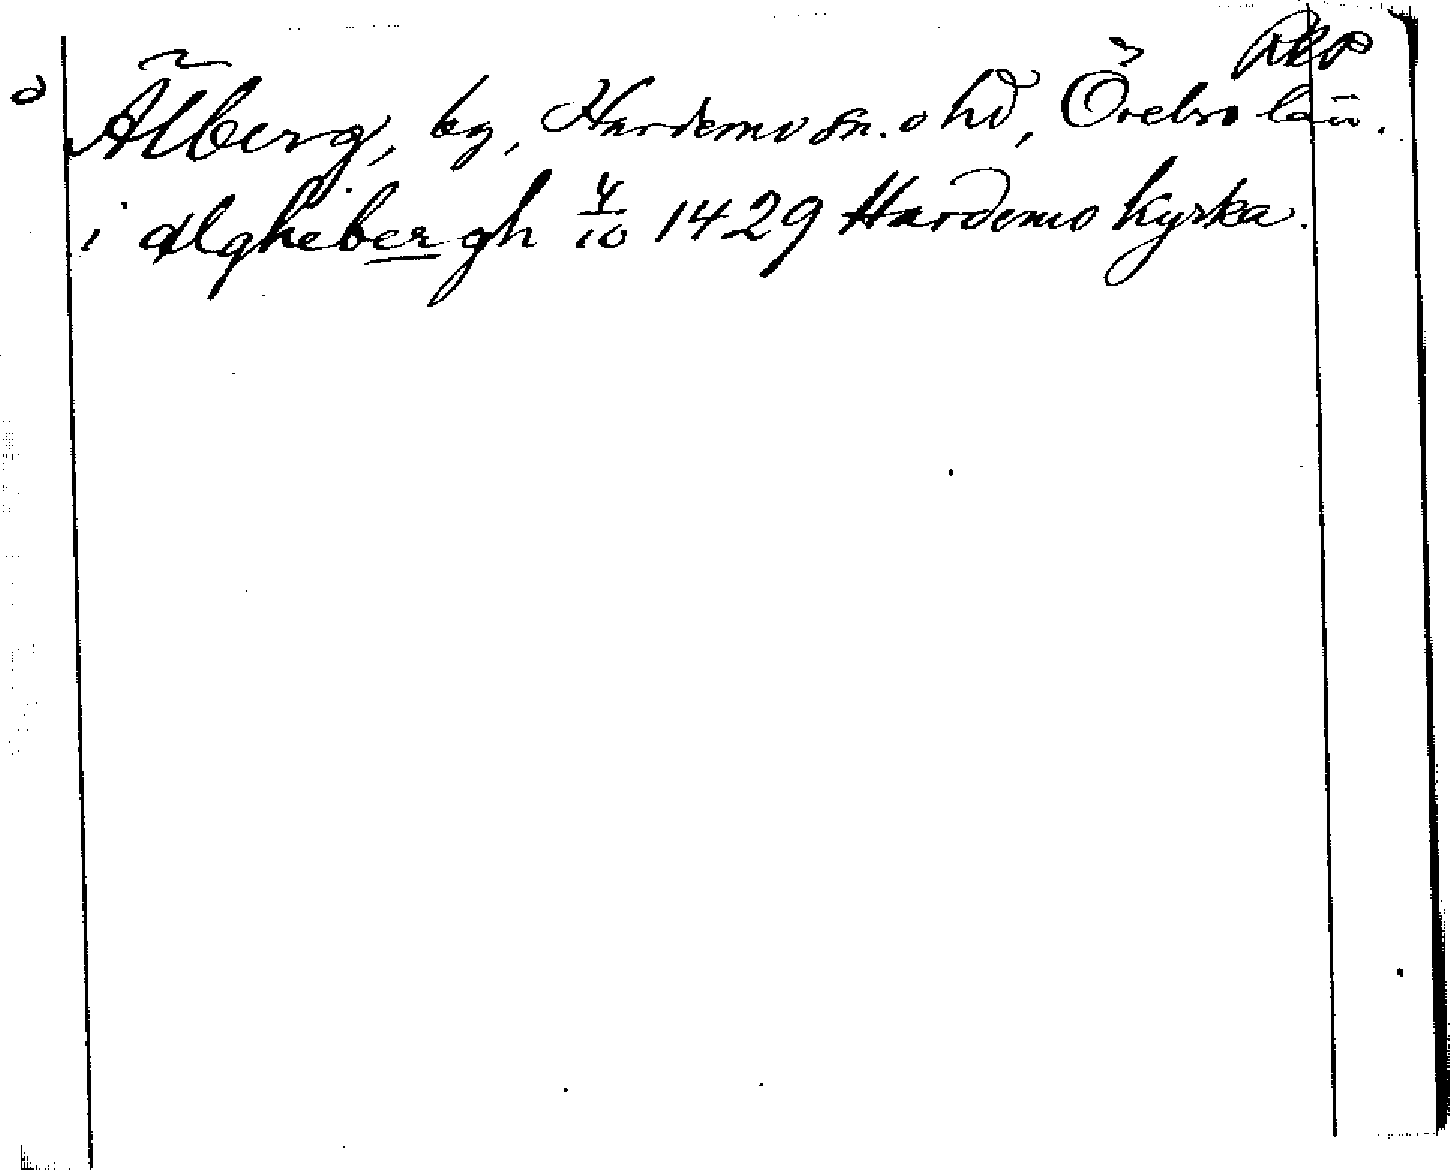 RAP
Älberg, by, Hardemo sn. o hd, Örebro län.
i Ælghebergh 4/10 1429 Hardemo kyrka.